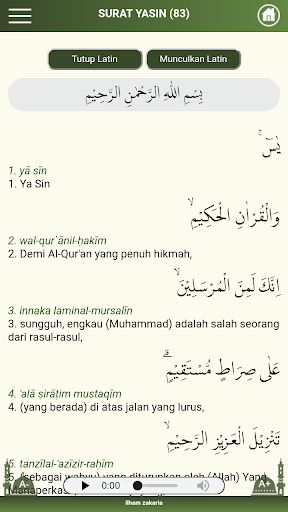 SURAT YASIN (83)
Tutup Latin
Munculkan Latin
بِسْمِ اللّٰهِ الرَّحْمٰنِ الرَّحِيْمِ
يٰسۤ ۚ
1. yā sīn
1. Ya Sin
وَالْقُرْاٰنِ الْحَكِيْمِۙ
2. wal-qur`ānil-ḥakīm
2. Demi Al-Qur'an yang penuh hikmah,
اِنَّكَ لَمِنَ الْمُرْسَلِيْنَۙ
3. innaka laminal-mursalīn
3. sungguh, engkau (Muhammad) adalah salah seorang
dari rasul-rasul,
عَلٰى صِرَاطٍ مُّسْتَقِيْمٍۗ
4. 'alā ṣirāṭim mustaqīm
4. (yang berada) di atas jalan yang lurus,
تَنْزِيْلَ الْعَزِيْزِ الرَّحِيْمِۙ
5. tanzīlal-'azīzir-raḥīm
5. (sebagai wahyu) yang diturunkan oleh (Allah) Yang
A-
0:00
A+
ilham zakaria